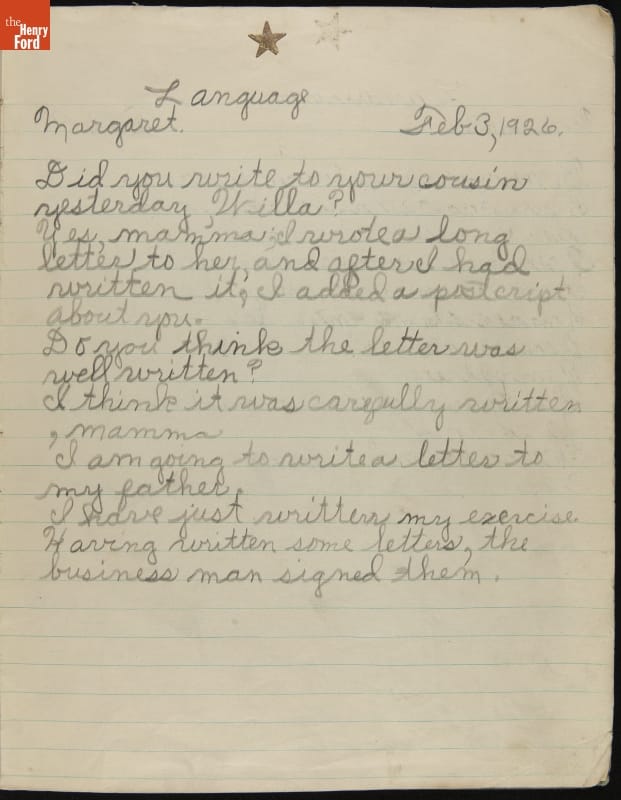 the
Henry
Ford
Language
Margaret. Feb 3, 1926.
Did you write to your cousin
yesterday, Willa?
Yes, mamma; I wrote a long
letter to her, and after I had
written it, I added a postcript
about you.
Do you think the letter was
well written?
I think it was carefully written
, mamma
I am going to write a letter to
my father.
I have just written my exercise.
Having written some letters, the
business man signed them.